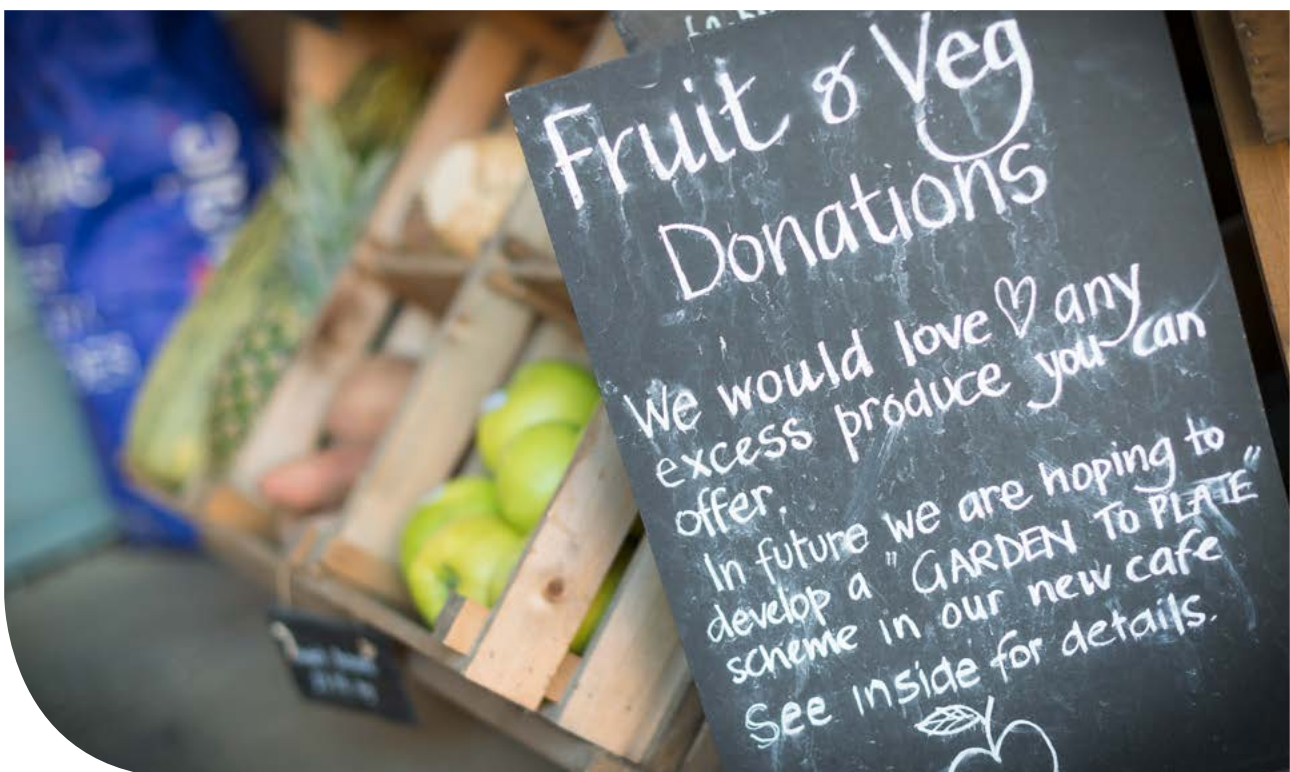 Fruit & Veg
Donations
We would love ♡ any
excess produce you can
offer.
In future we are hoping to
develop a "GARDEN TO PLATE"
scheme in our new cafe
See inside for details.